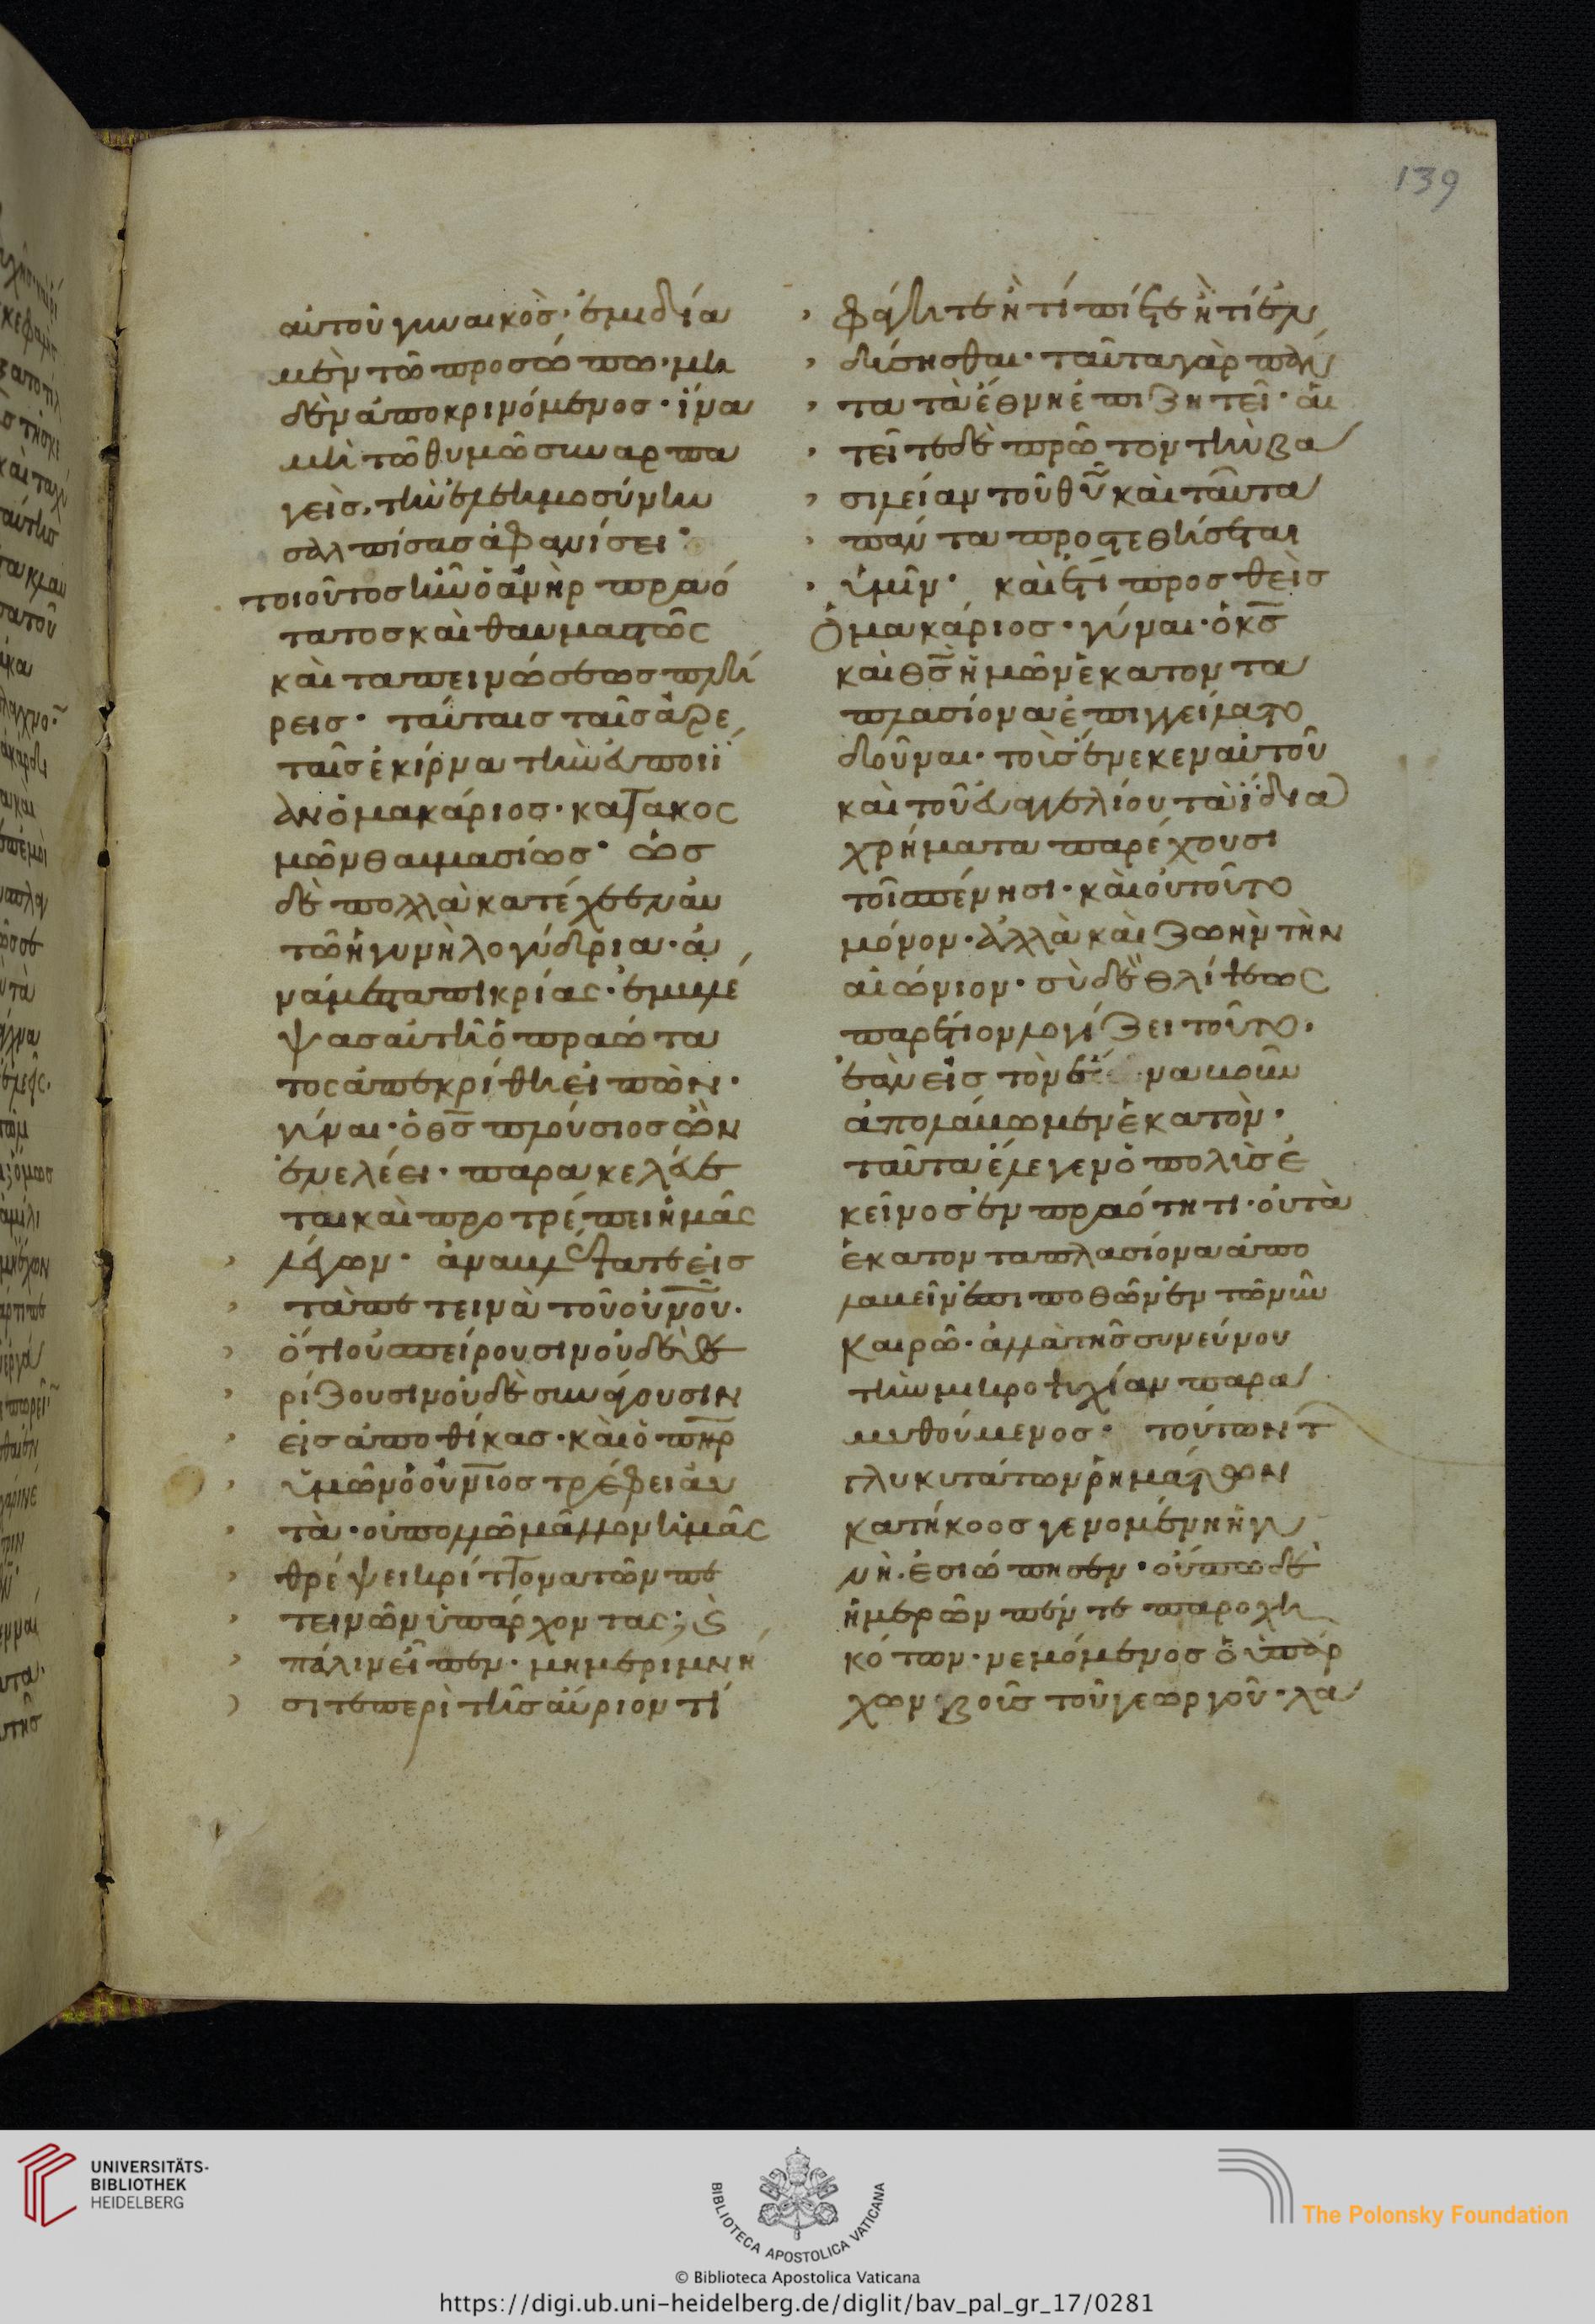 αὐτοῦ γυναικὸς· ἐμιδία
μὲν τῶ προσώπω· μη
δὲν ἀποκρινόμενος· ἵνα
μὴ τῶ θυμῶ συναρπα
γεὶς, τὴν ἐλεημοσύνην
σαλπίσας ἀφανίσει·
τοιοῦτος ἦν ὁ ἀνὴρ πραό
τατος καὶ θαυμαστῶς
καὶ ταπεινώσεως πλή
ρεις· ταύταις ταῖς ἀρε
ταῖς ἐκίρνα τὴν εὐποιΐ
αν ὁ μακάριος· κατακοσ
μῶν θαυμασίως· ὡς
δὲ πολλὰ κατέχεεν αὐ
τῶ ἡ γυνὴ λογύδρια· ἀ
νάμεστα πικρίας· ἐμβλέ
ψας αὐτῆ ὁ πραώτα
τος ἀπεκρίθη εἰπὼν·
γύναι· ὁ θς̅ πλούσιος ὢν
ἐν ελέει· παρακελεύε
ται καὶ προτρέπει ἡμᾶς
λέγων· ἀναβλέψατε εἰς
τὰ πετεινὰ τοῦ οὐνοῦ·
ὅτι οὐ σπείρουσιν οὐδὲ θε
ρίζουσιν οὐδὲ συνάγουσιν
εἰς ἀποθήκας· καὶ ὁ πηρ
ὑμῶν ὁ οὐνιος τρέφει αὐ
τὰ· οὐ πολλῶ μᾶλλον ὑμᾶς
θρέψει κρίττονα τῶν πε
τεινῶν ὑπάρχοντας; ϗ
πάλιν εἶπεν· μὴ μεριμνή
σιτε περὶ τῆς αὔριον τί
139
φάγητε ἢ τί πίετε ἢ τί ἐν
δύσησθαι· ταῦτα γὰρ πάν
τα τὰ ἔθνη ἐπιζητεῖ· αἰ
τεῖτε δὲ πρῶτον τὴν βα
σιλείαν τοῦ θῦ καὶ ταῦτα
πάντα προστεθήσεται
ὑμῖν· καὶ ἔτι προσθεὶς
ὁ μακάριος· γύναι· ὁ κς̅
καὶ θς̅ ἡμῶν ἑκατοντα
πλασίονα ἐπιγγείλατο
δοῦναι· τοῖς ἕνεκεν αὐτοῦ
καὶ τοῦ εὐαγγελίου τὰ ἴδια
χρήματα παρέχουσι
τοῖς πένησι· καὶ οὐ τοῦτο
μόνον· ἀλλὰ καὶ ζωὴν τὴν
αἰώνιον· σὺ δὲ θλίψεως
παρέτιον λογίζει τοῦτο·
ἐὰν εἰς τὸν ἕνα βοῦν
ἀπολάβωμεν ἑκατὸν·
ταῦτα ἔλεγεν ὁ πολὺς ἐ
κεῖνος ἐν πραότητι· οὐ τὰ
ἑκατονταπλασίονα ἀπο
λαβεῖν ἐπιποθῶν ἐν τῶ νῦν
καιρῶ· ἀλλὰ τῆς συνεύνου
τὴν μικροψυχίαν παρα
μυθούμενος· τούτων τ
γλυκυτάτων ῥημάτων
κατήκοος γενομένη ἡ γυ
νὴ· ἐσιώπησεν· οὔπω δὲ
ἡμερῶν πέντε παροχη
κότων· νεμόμενος ὁ ὑπάρ
χων βοῦς τοῦ γεωργοῦ· λα
UNIVERSITÄTS-
BIBLIOTHEK
HEIDELBERG
BIBLIOTECA APOSTOLICA VATICANA
The Polonsky Foundation
© Biblioteca Apostolica Vaticana
https://digi.ub.uni-heidelberg.de/diglit/bav_pal_gr_17/0281